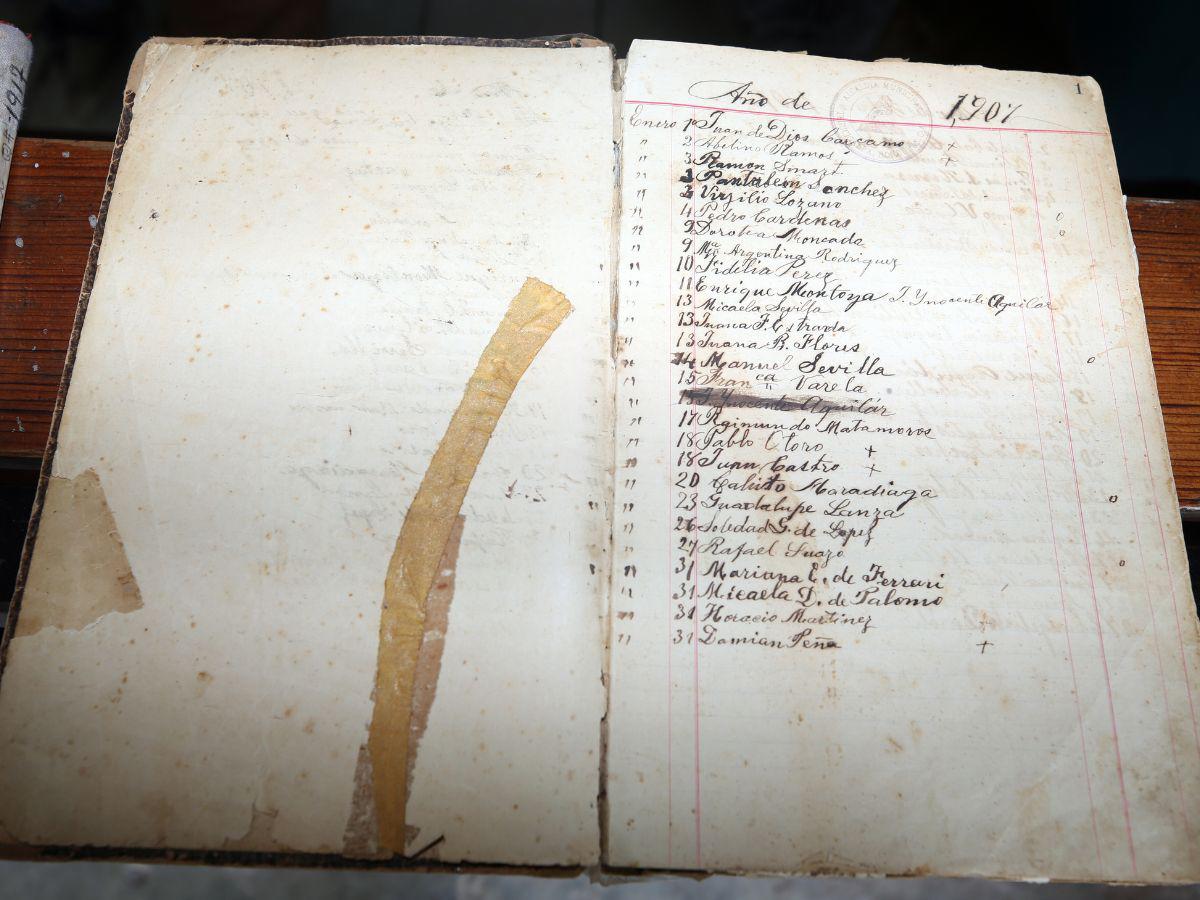 1917
1
ALCALDIA MUNI
Año de 1,907
Enero 1º Juan de Dios Carcamo +
" 2 Abelino Ramos +
" 3 Ramon Smart +
" 3 Pantaleon Sanchez
" 3 Virjilio Lozano
" 4 Pedro Cardenas o
" 9 Dorotea Moncada o
" 9 Mª Argentina Rodriguez
" 10 Fidelia Perez
" 11 Enrique Montoya J. Ynocente Aguilar
" 13 Micaela Sevilla
" 13 Juana F. Estrada
" 13 Juana B. Flores
" 14 Manuel Sevilla o
" 15 Franca Varela
" 15 J. Ynocente Aguilár
" 17 Raimundo Matamoros
" 18 Pablo Oloro +
" 18 Juan Castro +
" 20 Calisto Maradiaga
" 23 Guadalupe Lanza o
" 26 Soledad G. de Lopez
" 27 Rafael Suazo
" 31 Mariana E. de Ferrari o
" 31 Micaela D. de Palomo
" 31 Horacio Martinez +
" 31 Damian Peña +